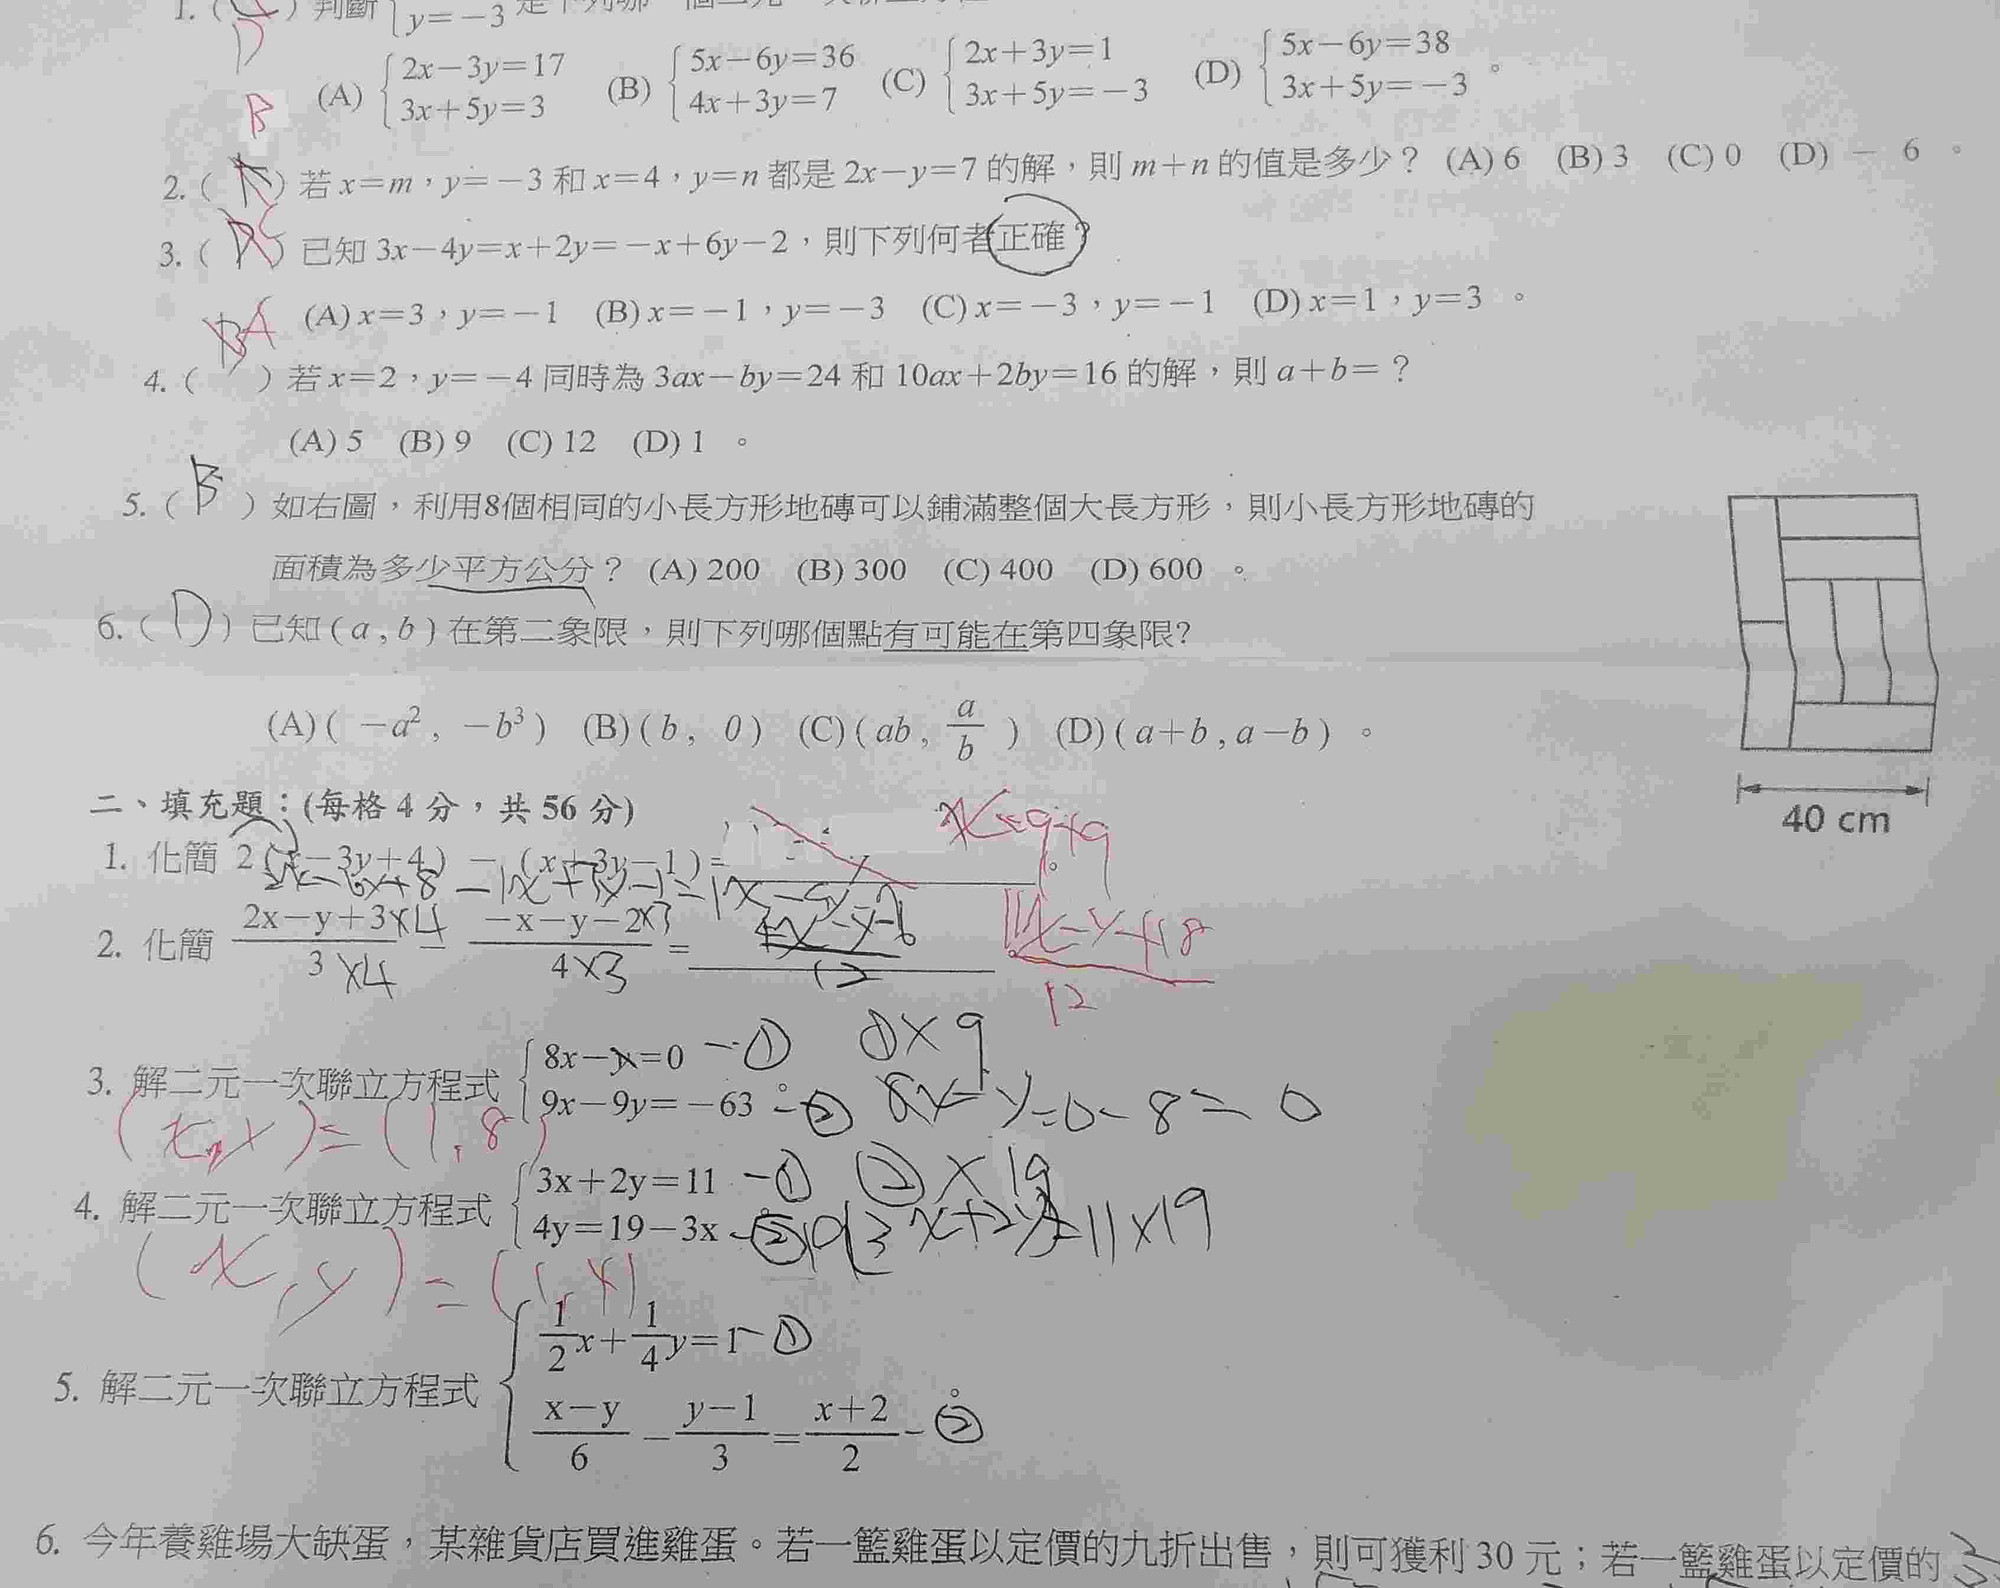 1. ( ) 判斷 { y=-3
D
(A) { 2x-3y=17 3x+5y=3 (B) { 5x-6y=36 4x+3y=7 (C) { 2x+3y=1 3x+5y=-3 (D) { 5x-6y=38 3x+5y=-3 。
B
2. ( ) 若 x=m，y=-3 和 x=4，y=n 都是 2x-y=7 的解，則 m+n 的值是多少？ (A) 6 (B) 3 (C) 0 (D) - 6 。
3. ( ) 已知 3x-4y=x+2y=-x+6y-2，則下列何者正確？
(A) x=3，y=-1 (B) x=-1，y=-3 (C) x=-3，y=-1 (D) x=1，y=3 。
A
4. ( ) 若 x=2，y=-4 同時為 3ax-by=24 和 10ax+2by=16 的解，則 a+b=？
(A) 5 (B) 9 (C) 12 (D) 1 。
5. ( B ) 如右圖，利用8個相同的小長方形地磚可以鋪滿整個大長方形，則小長方形地磚的
面積為多少平方公分？ (A) 200 (B) 300 (C) 400 (D) 600 。
6. ( D ) 已知 ( a , b ) 在第二象限，則下列哪個點有可能在第四象限?
(A) ( -a², -b³ ) (B) ( b, 0 ) (C) ( ab, a/b ) (D) ( a+b , a-b ) 。
40 cm
二、填充題：(每格 4 分，共 56 分)
1. 化簡 2 (x-3y+4) - (x+3y-1) = 。
2. 化簡 (2x-y+3)/3 - (-x-y-2)/4 =
×4 ×3
×4 ×3
4x-y-6
12
11x-y+18
12
3. 解二元一次聯立方程式 { 8x-y=0 9x-9y=-63 。
-① ①×9
-② 8x-y=0-8=0
(x,y)=(1,8)
4. 解二元一次聯立方程式 { 3x+2y=11 4y=19-3x 。
-① ②×19
-② 19(3x+2y)=11×19
(x,y)=(1,4)
5. 解二元一次聯立方程式 { 1/2x+1/4y=1 (x-y)/6-(y-1)/3=(x+2)/2 。
-①
-②
6. 今年養雞場大缺蛋，某雜貨店買進雞蛋。若一籃雞蛋以定價的九折出售，則可獲利 30 元；若一籃雞蛋以定價的